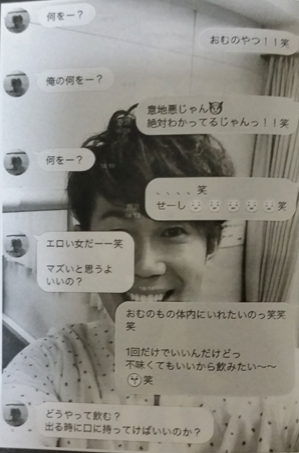 何をー？
おむのやつ！！笑
俺の何をー？
意地悪じゃん
絶対わかってるじゃんっ！！笑
何をー？
、、、、笑
せーし 笑
エロい女だーー笑
マズいと思うよ
いいの？
おむのもの体内にいれたいのっ笑笑
笑
1回だけでいいんだけどっ
不味くてもいいから飲みたい〜〜
笑
どうやって飲む？
出る時に口に持ってけばいいのか？